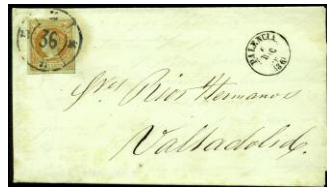 36
PALENCIA
Sres Rios Hermanos
Valladolid.